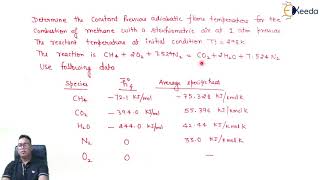 Ekeeda
Determine the Constant Pressure adiabatic flame temperature for the
combustion of methane with a stoichiometric air at 1 atm pressure
The reactant temperature at initial condition T1 = 298K
The reaction is CH4 + 2O2 + 7.52N2 = CO2 + 2H2O + 7.52N2
Use following data
Species h°f Average specific heat
CH4 -72.1 KJ/mol -75.328 KJ/kmol K
CO2 -394.0 KJ/mol 55.396 KJ/kmol K
H2O -244.0 KJ/mol 42.44 KJ/kmol K
N2 0 33.0 KJ/kmol K
O2 0 —